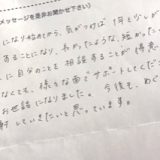 メッセージを是非お聞かせ下さい)
になり始めてから、気がつけば 1年と少しが
することになり、長かったような、短かった
に自分のことを相談することが得意
なくても、様々な面でサポートしてくださ
お世話になりました。今後も、めぐ
していきたいと思っています。